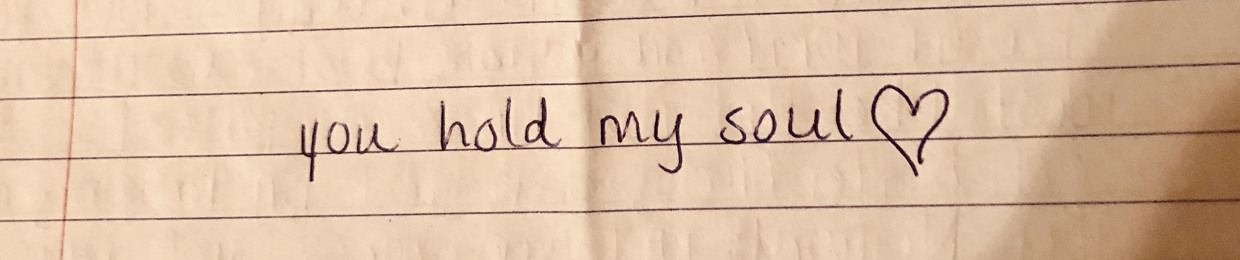 you hold my soul♡